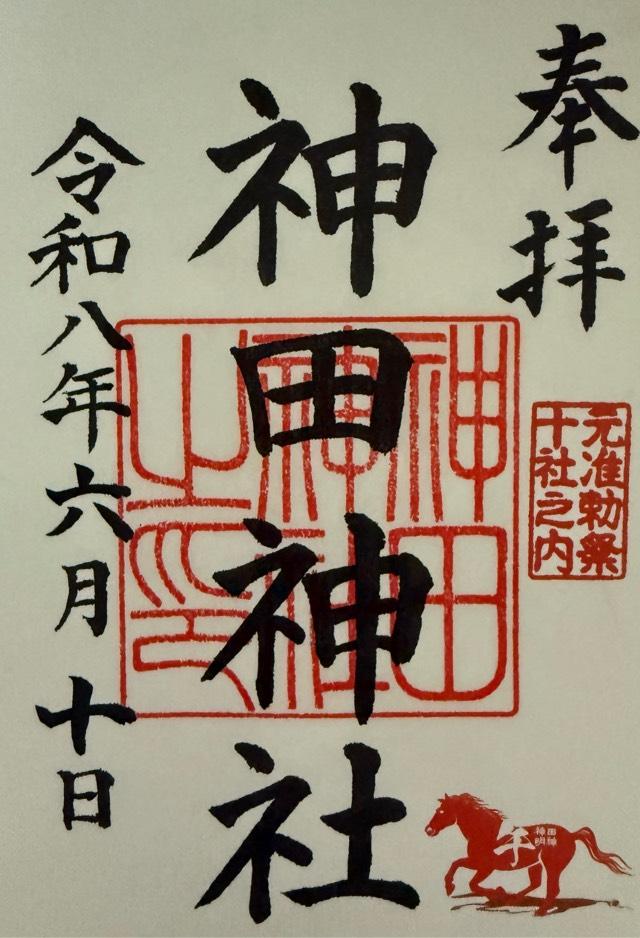 奉拝
元准勅祭
十社之内
神田神社
神田
神社
之印
令和八年六月十日
午
田神
神明